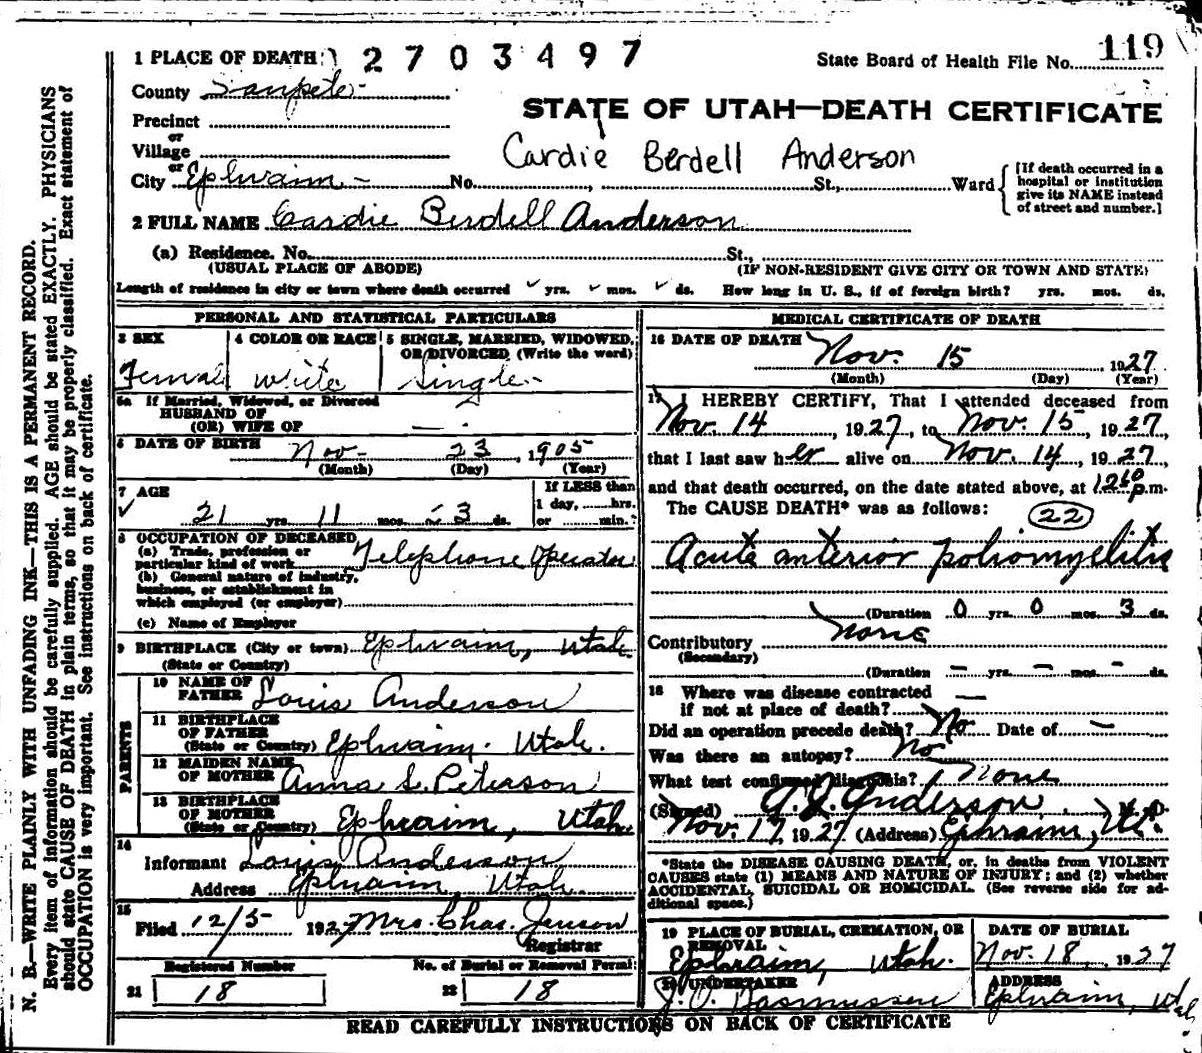 1 PLACE OF DEATH 2703497 State Board of Health File No. 119
County Sanpete
STATE OF UTAH—DEATH CERTIFICATE
Precinct
or
Village
Cardie Berdell Anderson
or
City Ephraim No. , St., Ward { [If death occurred in a hospital or institution give its NAME instead of street and number.]
2 FULL NAME Cardie Berdell Anderson
(a) Residence. No. St.,
(USUAL PLACE OF ABODE) (IF NON-RESIDENT GIVE CITY OR TOWN AND STATE)
Length of residence in city or town where death occurred yrs. mos. ds. How long in U. S., if of foreign birth? yrs. mos. ds.
PERSONAL AND STATISTICAL PARTICULARS
3 SEX 4 COLOR OR RACE 5 SINGLE, MARRIED, WIDOWED, OR DIVORCED (Write the word)
Female White Single
5a If Married, Widowed, or Divorced
HUSBAND OF
(OR) WIFE OF —
6 DATE OF BIRTH Nov- 23, 1905
(Month) (Day) (Year)
7 AGE If LESS than
1 day, hrs.
21 yrs. 11 mos. 23 ds. or min.?
8 OCCUPATION OF DECEASED
(a) Trade, profession or
particular kind of work Telephone Operator
(b) General nature of industry,
business, or establishment in
which employed (or employer)
(c) Name of Employer
9 BIRTHPLACE (City or town) Ephraim, Utah
(State or Country)
PARENTS
10 NAME OF
FATHER Louis Anderson
11 BIRTHPLACE
OF FATHER
(State or Country) Ephraim. Utah.
12 MAIDEN NAME
OF MOTHER Anna S. Peterson
13 BIRTHPLACE
OF MOTHER
(State or Country) Ephraim, Utah.
14
Informant Louis Anderson
Address Ephraim, Utah.
15
Filed 12/5 1927 Mrs. Chas. Jenson
Registrar
Registered Number No. of Burial or Removal Permit
21 18 22 18
MEDICAL CERTIFICATE OF DEATH
16 DATE OF DEATH Nov. 15 1927
(Month) (Day) (Year)
17 I HEREBY CERTIFY, That I attended deceased from
Nov. 14, 1927, to Nov. 15, 1927,
that I last saw her alive on Nov. 14, 1927,
and that death occurred, on the date stated above, at 1210 p.m.
The CAUSE DEATH* was as follows: 22
Acute anterior poliomyelitis
(Duration 0 yrs. 0 mos. 3 ds.
Contributory none
(Secondary)
(Duration — yrs. — mos. — ds.
18 Where was disease contracted
if not at place of death? —
Did an operation precede death? No Date of —
Was there an autopsy? No
What test confirmed diagnosis? None
(Signed) A. J. Anderson, M.D.
Nov. 17, 1927 (Address) Ephraim, Ut.
*State the DISEASE CAUSING DEATH, or, in deaths from VIOLENT
CAUSES state (1) MEANS AND NATURE OF INJURY; and (2) whether
ACCIDENTAL, SUICIDAL OR HOMICIDAL. (See reverse side for ad-
ditional space.)
19 PLACE OF BURIAL, CREMATION, OR REMOVAL DATE OF BURIAL
Ephraim, Utah. Nov. 18, 1927
20 UNDERTAKER ADDRESS
J. O. Rasmussen Ephraim, Utah
READ CAREFULLY INSTRUCTIONS ON BACK OF CERTIFICATE
N. B.—WRITE PLAINLY WITH UNFADING INK—THIS IS A PERMANENT RECORD.
Every item of information should be carefully supplied. AGE should be stated EXACTLY. PHYSICIANS
should state CAUSE OF DEATH in plain terms, so that it may be properly classified. Exact statement of
OCCUPATION is very important. See instructions on back of certificate.